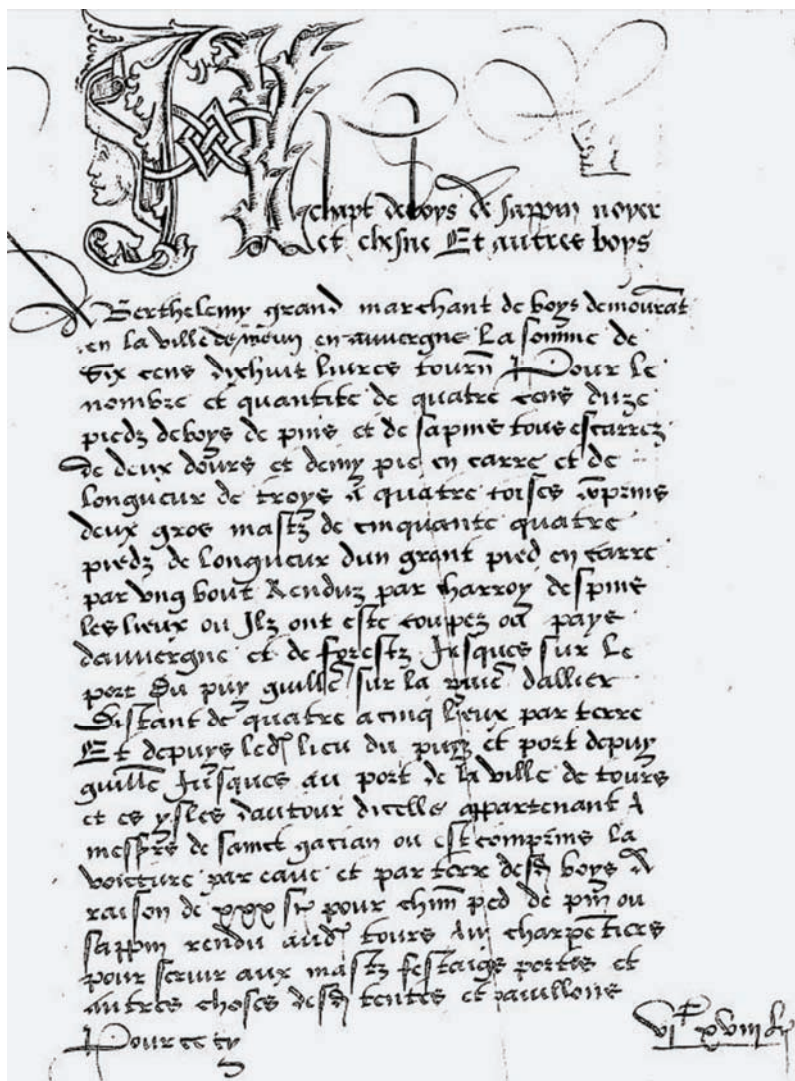 Achapt de boys de sappin noyer
et chesne Et autres boys
A Berthelemy grand marchant de boys demourāt
en la ville de en auvergne La somme de
Six cens dixhuit livres tourn̄ Pour le
nombre et quantite de quatre cens duze
piedz de boys de pins et de sapins tous escarrez
de deux dours et demy pie en carre et de
longueur de troys a quatre toises cōprins
deux gros mastz de cinquante quatre
piedz de longueur dun grant pied en carre
par ung bout Renduz par charroy despuis
les lieux ou Ilz ont este coupez ou pays
dauvergne et de forestz Jusques sur le
port Du puy guillē sur la rivie dallier
Distant de quatre a cinq lieux par terre
Et depuys led lieu du puy et port de puy
guillē Jusques au port de la ville de tours
et es ysles dautour dicelle appartenant A
messrs de sainct gatian ou est comprins la
voicture par eaue et par terre desd boys A
raison de xxx s pour chūn pied de pin ou
sappin rendu aud tours Au charpētiers
pour servir aux mastz festaigs portes et
autres choses desd tentes et pavillons
Pour cecy
vjc xviij lt